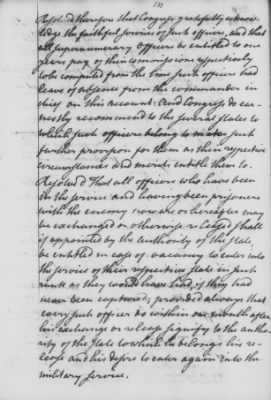 Resolved therefore that Congress gratefully acknow
ledge the faithful services of such officers, and that
all supernumerary officers be entitled to one
years pay of their commissions respectively
to be computed from the time such officers had
leave of absence from the commander in
chief on this account. And Congress do ear-
nestly recommend to the several states to
which such officers belong to make such
further provision for them as their respective
circumstances and merits entitle them to.
Resolved That all officers who have been
in the service and having been prisoners
with the enemy now are or hereafter may
be exchanged or otherwise released shall
if appointed by the authority of the state
be entitled in case of vacancy to enter into
the service of their respective state in such
rank as they would have had, if they had
never been captured; provided always that
every such officer do within one month after
his exchange or release signify to the autho-
rity of the state to which he belongs his re-
lease and his desire to enter again into the
military service.